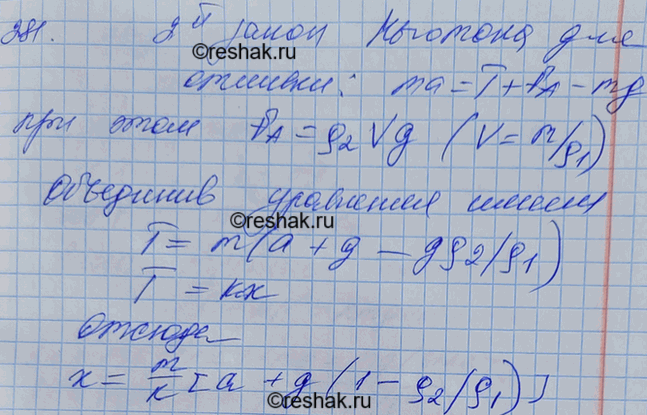 281. 2й закон Ньютона для
©reshak.ru
отливки: ma = T + FA - mg
при этом FA = ρ2Vg (V = m/ρ1)
Объединив уравнения имеем
©reshak.ru
T = m(a + g - gρ2/ρ1)
T = kx
Отсюда
x = m/k [a + g(1 - ρ2/ρ1)]
©reshak.ru